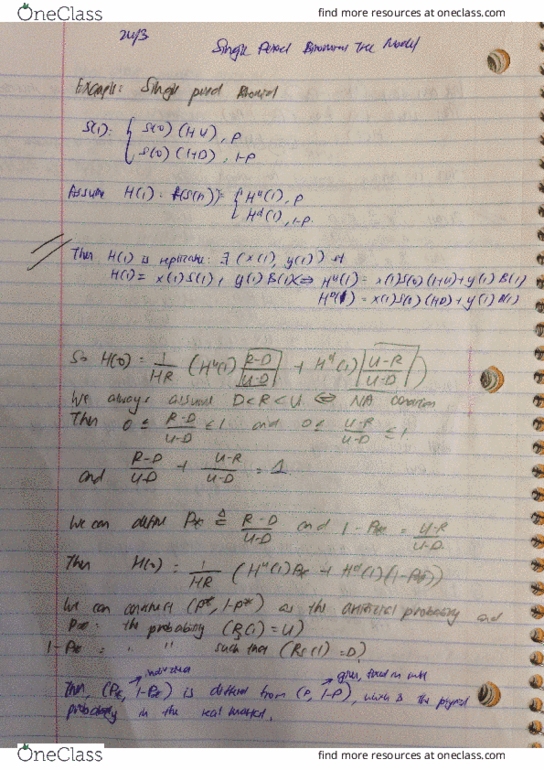 OneClass
find more resources at oneclass.com
24/3
Single Period Binomial Tree Model
Example: Single period Binomial
S(1): { S(0) (1+U), P
S(0) (1+D), 1-P
Assume H(1) = f(S(1)) = { Hᵘ(1), P
Hᵈ(1), 1-P.
Then H(1) is replicable: ∃ (x(1), y(1)) st
H(1) = x(1)S(1) + y(1)B(1) ⟺ Hᵘ(1) = x(1)S(0)(1+U) + y(1)B(1)
Hᵈ(1) = x(1)S(0)(1+D) + y(1)B(1)
So H(0) = 1/(1+R) (Hᵘ(1) (R-D)/(U-D) + Hᵈ(1) (U-R)/(U-D))
We always assume D<R<U ⟺ NA condition
Then 0 ≤ (R-D)/(U-D) ≤ 1 and 0 ≤ (U-R)/(U-D) ≤ 1
and (R-D)/(U-D) + (U-R)/(U-D) = 1
We can define P* ≜ (R-D)/(U-D) and 1-P* = (U-R)/(U-D)
Then H(0) = 1/(1+R) (Hᵘ(1)P* + Hᵈ(1)(1-P*))
We can construct (P*, 1-P*) as the artificial probability and
P* = the probability (Rs(1) = U)
1-P* = " " such that (Rs(1) = D)
given, fixed in
Then, (P*, 1-P*) is different from (P, 1-P), which is the physical
probability in the real market.
OneClass
find more resources at oneclass.com